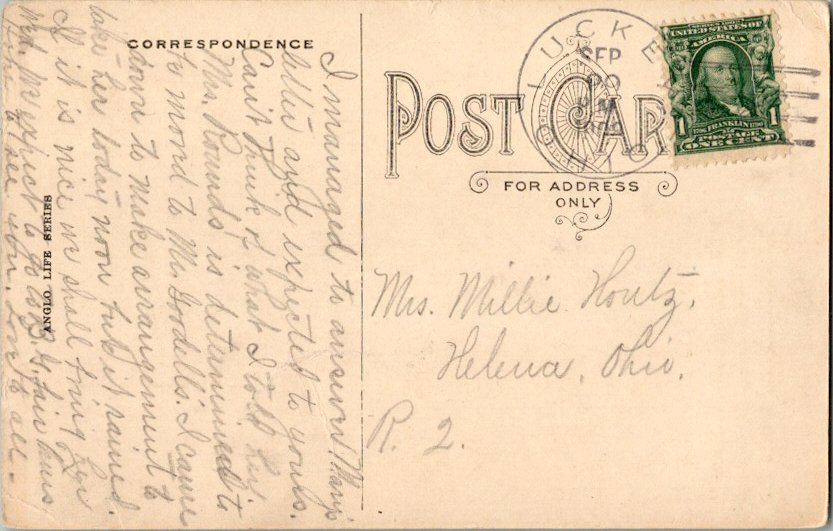 CORRESPONDENCE
I managed to answer Mary's
letter and expected to yours.
Can't think of what I told her
Mrs. Rounds is determined to
to move to Mr. Goodell's. I came
down to make arrangement to
take her today noon but it rained.
If it is nice we shall bring her
We expect to go to fair
to see you. Love to all.
ANGLO LIFE SERIES
POST CARD
FOR ADDRESS
ONLY
LUCKEY
SEP
20
OHIO
SERIES 1902
UNITED STATES OF
AMERICA
1706 FRANKLIN 1790
1 POSTAGE 1
ONE CENT
Mrs. Millie Houtz.
Helena, Ohio.
R. 2.